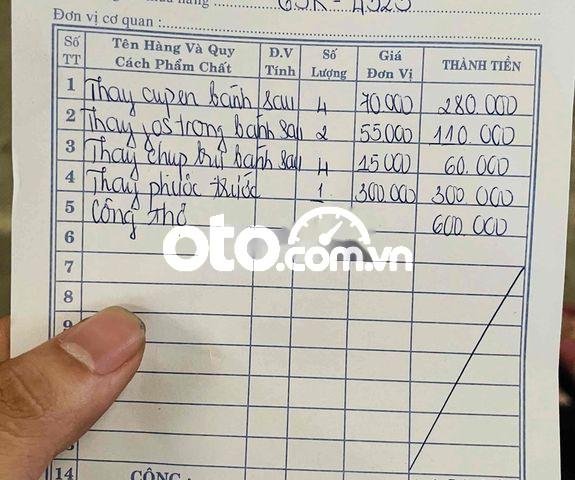 65R - 4525
Đơn vị cơ quan :
Số TT Tên Hàng Và Quy Cách Phẩm Chất Đ.V Tính Số Lượng Giá Đơn Vị THÀNH TIỀN
1 Thay cupen bánh sau 4 70 000 280.000
2 Thay ắc trong bánh sau 2 55000 110.000
3 Thay chụp bụi bánh sau 4 15000 60.000
4 Thay phuộc trước 1 300.000 300 000
5 Công thợ 600.000
6
7
8
14 CỘNG :
oto.com.vn